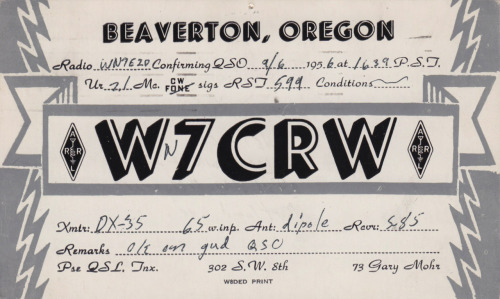 BEAVERTON, OREGON
Radio WN7EZO Confirming QSO 9/6 1956 at 1639 P.S.T.
Ur 21 Mc. CW FONE sigs RST 599 Conditions
ARRL WN7CRW ARRL
Xmtr: DX-35 65 w.inp. Ant: dipole Rcvr: S85
Remarks om gud QSO
Pse QSL, Tnx. 302 S.W. 8th 73 Gary Mohr
WEDED PRINT